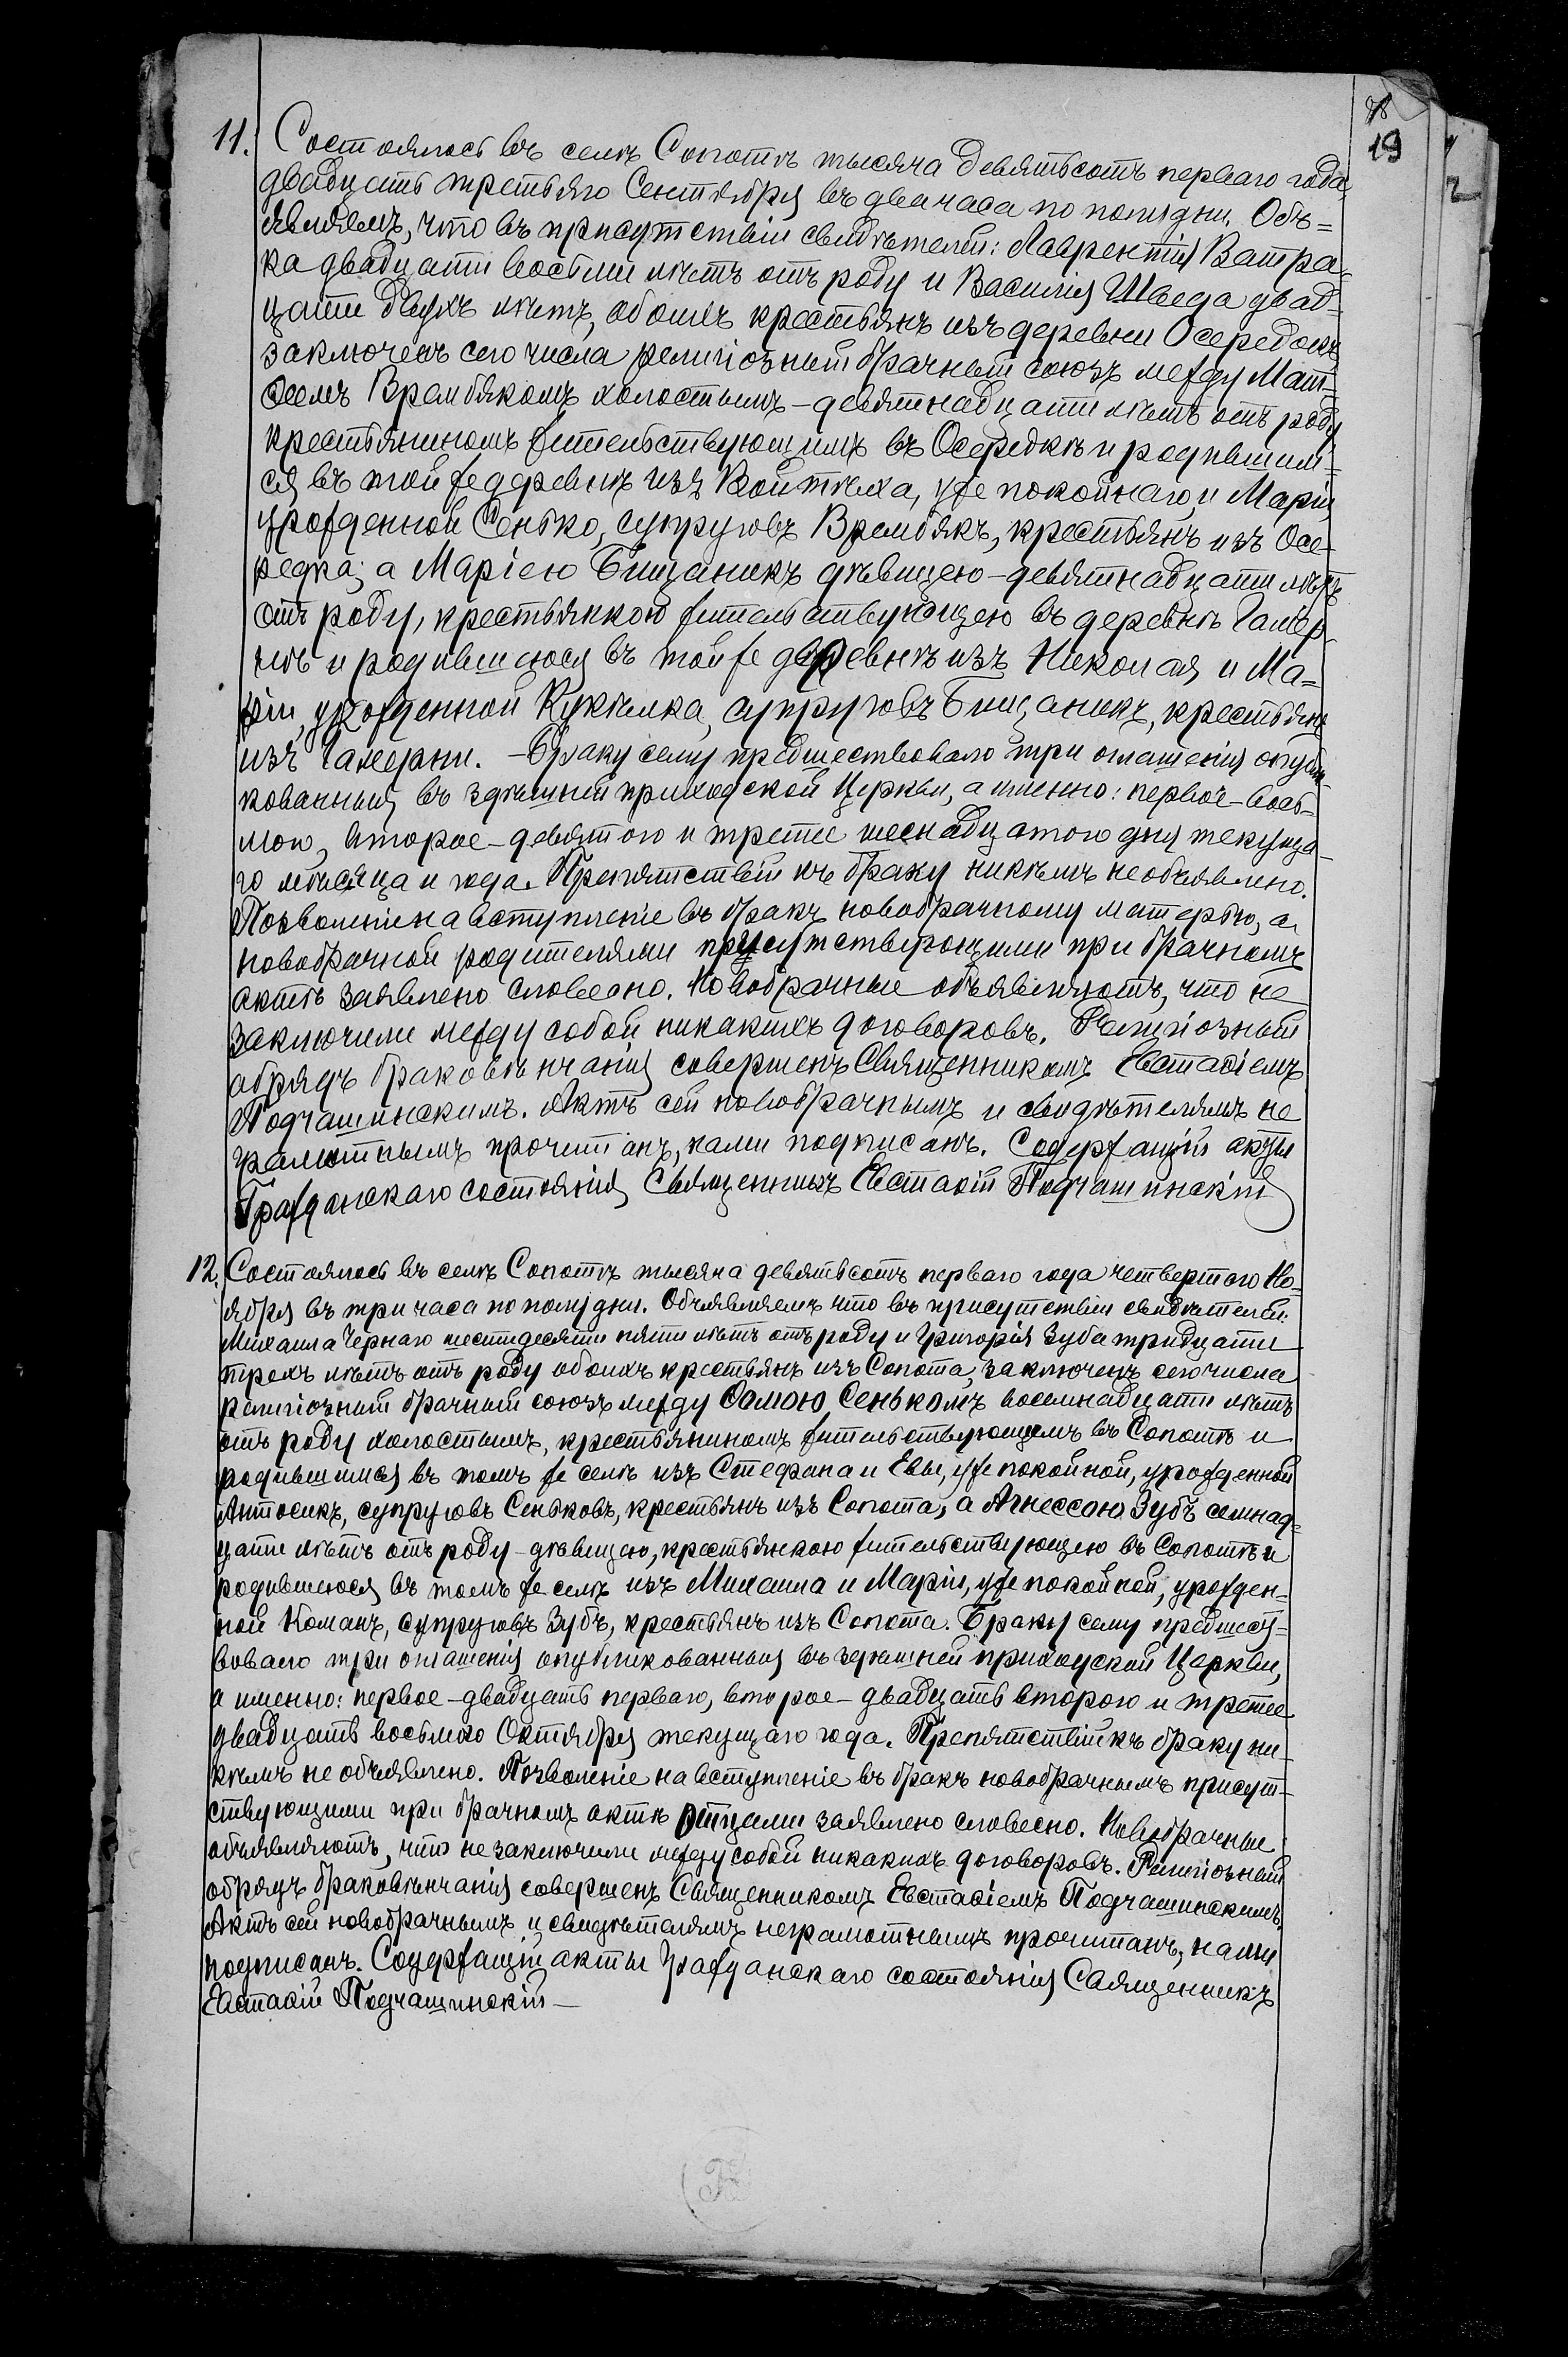 78
19
11. Состоялось въ селѣ Сопотѣ тысяча девятьсотъ перваго года,
двадцать третьяго Сентября въ два часа по полудни. Объ=
являемъ, что въ присутствіи свидѣтелей: Лаврентія Ватра-
ка двадцати восьми лѣтъ отъ роду и Василія Шведа двад-
цати двухъ лѣтъ, обоихъ крестьянъ изъ деревни Осередокъ
заключенъ сего числа религіозный брачный союзъ между Мат-
ѳеемъ Врамбякомъ холостымъ – девятнадцати лѣтъ отъ роду
крестьяниномъ жительствующимъ въ Осередкѣ и родившим=
ся въ той же деревнѣ изъ Войтѣха, уже покойнаго, и Маріи
урожденной Сенько, супруговъ Врамбякъ, крестьянъ изъ Осе-
редка; а Маріею Бищаникъ дѣвицею – девятнадцати лѣтъ
отъ роду, крестьянкою жительствующею въ деревнѣ Гамер-
нѣ и родившеюся въ той же деревнѣ изъ Николая и Ма=
ріи, урожденной Кукѣлка, супруговъ Бищаникъ, крестьянъ
изъ Гамерни. – Браку сему предшествовало три оглашенія опубли
кованныя въ здѣшней приходской Церкви, а именно: первое – вось-
мого, второе – девятого и третье шеснадцатого дня текуща-
го мѣсяца и года. Препятствій къ браку никѣмъ необъявлено.
Позволеніе на вступленіе въ бракъ новобрачному матерью, а
новобрачной родителями присутствующими при брачномъ
актѣ заявлено словесно. Новобрачные объявляютъ, что не
заключили между собой никакихъ договоровъ. Религіозный
обрядъ браковѣнчанія совершенъ Священникомъ Евстаѳіемъ
Подчашинскимъ. Актъ сей новобрачнымъ и свидѣтелямъ не
грамотнымъ прочитанъ, нами подписанъ. Содержащій акты
Гражданскаго состоянія Священникъ Евстаѳій Подчашинскій
12. Состоялось въ селѣ Сопотѣ тысяча девятьсотъ перваго года четвертого Но-
ября въ три часа по полудни. Объявляемъ что въ присутствіи свидѣтелей:
Михаила Чернаго шестидесяти пяти лѣтъ отъ роду и Григорія Зуба тридцати
трехъ лѣтъ отъ роду обоихъ крестьянъ изъ Сопота, заключенъ сего числа
религіозный брачный союзъ между Ѳомою Сенькомъ восемнадцати лѣтъ
отъ роду холостымъ, крестьяниномъ жительствующемъ въ Сопотѣ и
родившимся въ томъ же селѣ изъ Стефана и Евы, уже покойной, урожденной
Антосикъ, супруговъ Сеньковъ, крестьянъ изъ Сопота, а Агнессою Зубъ семнад=
цати лѣтъ отъ роду – дѣвицею, крестьянкою жительствующею въ Сопотѣ и
родившеюся въ томъ же селѣ изъ Михаила и Маріи, уже покойной, урожден-
ной Команъ, супруговъ Зубъ, крестьянъ изъ Сопота. Браку сему предшест=
вовало три оглашенія опубликованныя въ здѣшней приходской Церкви,
а именно: первое – двадцать перваго, второе – двадцать второго и третье
двадцать восьмого Октября текущаго года. Препятствій къ браку ни-
кѣмъ не объявлено. Позволеніе на вступленіе въ бракъ новобрачнымъ присут-
ствующими при брачномъ актѣ отцами заявлено словесно. Новобрачные
объявляютъ, что не заключили между собой никакихъ договоровъ. Религіозный
обрядъ браковѣнчанія совершенъ Священникомъ Евстаѳіемъ Подчашинскимъ.
Актъ сей новобрачнымъ и свидѣтелямъ неграмотнымъ прочитанъ, нами
подписанъ. Содержащій акты Гражданскаго состоянія Священникъ
Евстаѳій Подчашинскій –